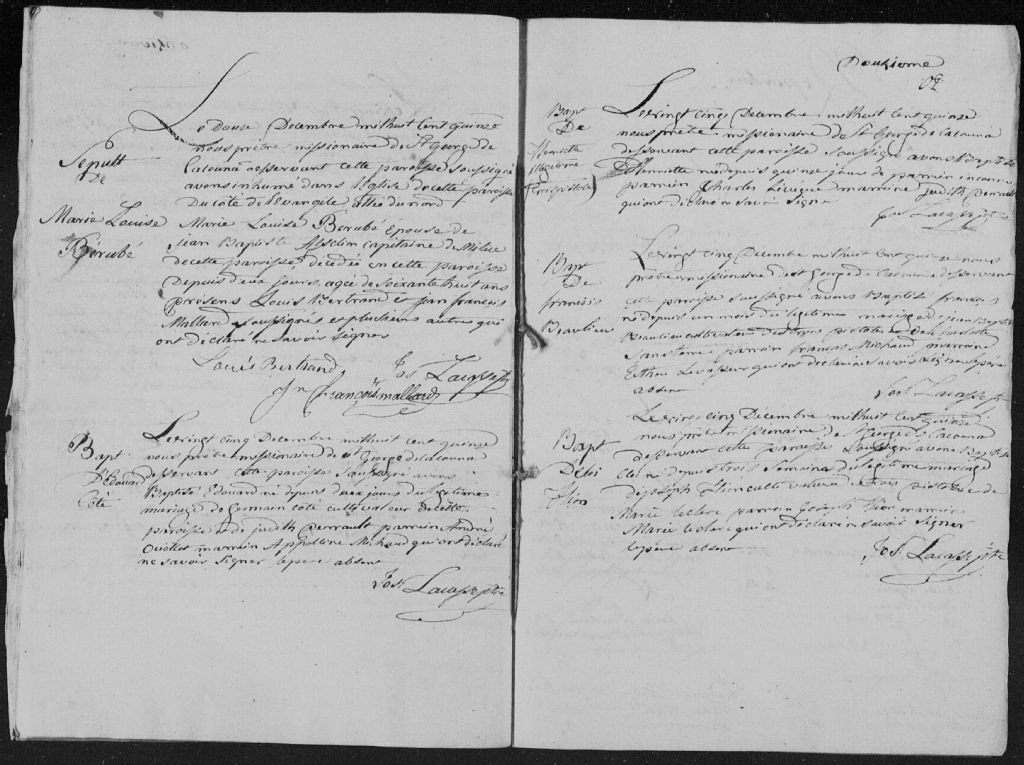 Le Douse Decembre mil huit Cent quinse
nous prêtre missionaire de St George de
Cacouna desservant cette paroisse soussigné
avons inhumé dans l'Eglise de cette paroisse
Du Côté de l'evangile allée du nord
Sepult
de
Marie Louise
Bérubé
Marie Louise Berubé Epouse de
jean Baptiste Asselin capitaine de Milice
de cette paroisse, décédée en cette paroisse
Depuis deux jours, agée de soixante huit ans
présens Louis Bertrand et jean françois
Mallard soussignés et plusieurs autres qui
ont déclaré ne savoir signer
Louis Bertrand Jos Lacasse ptre
Jn françois mallard
Bapt
D'Edouard
Côté
Le vingt cinq Decembre mil huit cent quinse
nous prêtre missionaire de st George de Cacouna
desservant cette paroisse soussigné avons
Baptisé Edouard né depuis deux jours du legitime
mariage de Germain côté cultivateur de cette
paroisse et de judith perrault parrain André
Ouellet marraine Appolline Michaud qui ont déclaré
ne savoir signer le père absent
Jos. Lacasse ptre
Douzieme
Bapt
De
Henriette
Le vingt cinq Decembre mil huit Cent quinse
nous prêtre missionaire de St George de Cacouna
desservant cette paroisse soussigné avons Baptisé
Henriette née depuis quinse jours de parens inconnus
parrain Charles Levêque marraine judith perrault
qui ont déclaré ne savoir signer
Jos. Lacasse ptre
Bapt
de
francois
Beaulieu
Le vingt cinq Decembre mil huit cent quinse nous
prêtre missionaire de st George de Cacouna desservant
cette paroisse soussigné avons Baptisé françois
né depuis un mois du legitime mariage de jean Baptiste
Beaulieu cultivateur des trois pistoles et de
parrain françois Michaud marraine
Esther Levasseur qui ont déclaré ne savoir signer le père
absent
Jos. Lacasse ptre
Bapt
D'Eloi
Rion
Le vingt cinq Decembre mil huit Cent quinse
nous prêtre missionaire de St George de Cacouna
desservant cette paroisse soussigné avons Baptisé
Eloi né depuis trois semaines du legitime mariage
de joseph Rion cultivateur de trois pistoles et de
Marie leclerc parrain joseph Rion marraine
Marie leclerc qui ont déclaré ne savoir signer
le père absent
Jos. Lacasse ptre